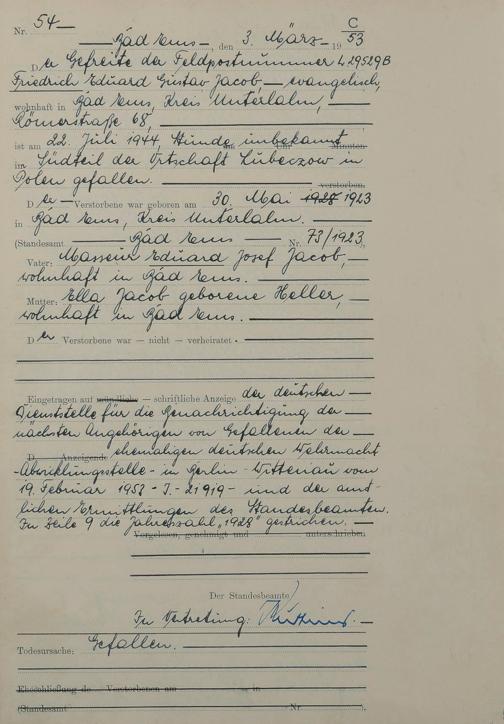 Nr. 54
C
53
Bad Ems, den 3. März 19
Der Gefreite der Feldpostnummer L 29529B
Friedrich Eduard Gustav Jacob, evangelisch,
wohnhaft in Bad Ems, Kreis Unterlahn,
Römerstraße 68,
ist am 22. Juli 1944, Stunde unbekannt
Uhr Minuten
im Südteil der Ortschaft Lubeczow in
Polen gefallen.
verstorben.
Der Verstorbene war geboren am 30. Mai 1928 1923
in Bad Ems, Kreis Unterlahn.
(Standesamt Bad Ems Nr. 73/1923),
Vater: Masseur Eduard Josef Jacob,
wohnhaft in Bad Ems.
Mutter: Ella Jacob geborene Heller,
wohnhaft in Bad Ems.
Der Verstorbene war — nicht — verheiratet.
Eingetragen auf mündliche — schriftliche Anzeige der deutschen
Dienststelle für die Benachrichtigung der
nächsten Angehörigen von Gefallenen der
D Anzeigende ehemaligen deutschen Wehrmacht
-Abwicklungsstelle- in Berlin-Wittenau vom
19. Februar 1953 - J.- 21919 - und der amt-
lichen Ermittlungen des Standesbeamten.
In Zeile 9 die Jahreszahl „1928" gestrichen.
Vorgelesen, genehmigt und unterschrieben
Der Standesbeamte
In Vertretung:
Todesursache: Gefallen.
Eheschließung de Verstorbenen am in
(Standesamt Nr. ).